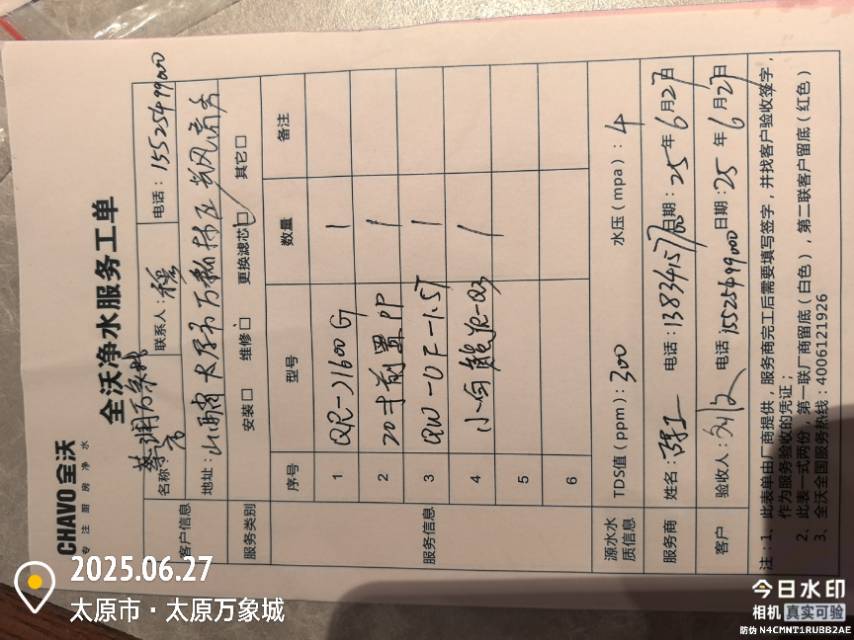 CHAVO 全沃
专注厨房净水
全沃净水服务工单
客户信息
名称：
联系人：
电话：15525499000
地址：山西省太原市万柏林区
服务类别
安装□ 维修□ 更换滤芯□ 其它□
服务信息
序号 型号 数量 备注
1 QR-J1600G 1
2 20寸前置PP 1
3 QW-UF-1.5T 1
4 1
5
6
源水水质信息
TDS值（ppm）：300 水压（mpa）：4
服务商 姓名： 电话： 日期：25年6月27日
客户 验收人： 电话 15525499000 日期：25年6月27日
注：1、此表单由厂商提供，服务商完工后需要填写签字，并找客户验收签字，
作为服务验收的凭证；
2、此表一式两份，第一联厂商留底（白色），第二联客户留底（红色）
3、全沃全国服务热线：4006121926
2025.06.27
太原市·太原万象城
今日水印
相机 真实可验
防伪 N4CMNT1RUBB2AE